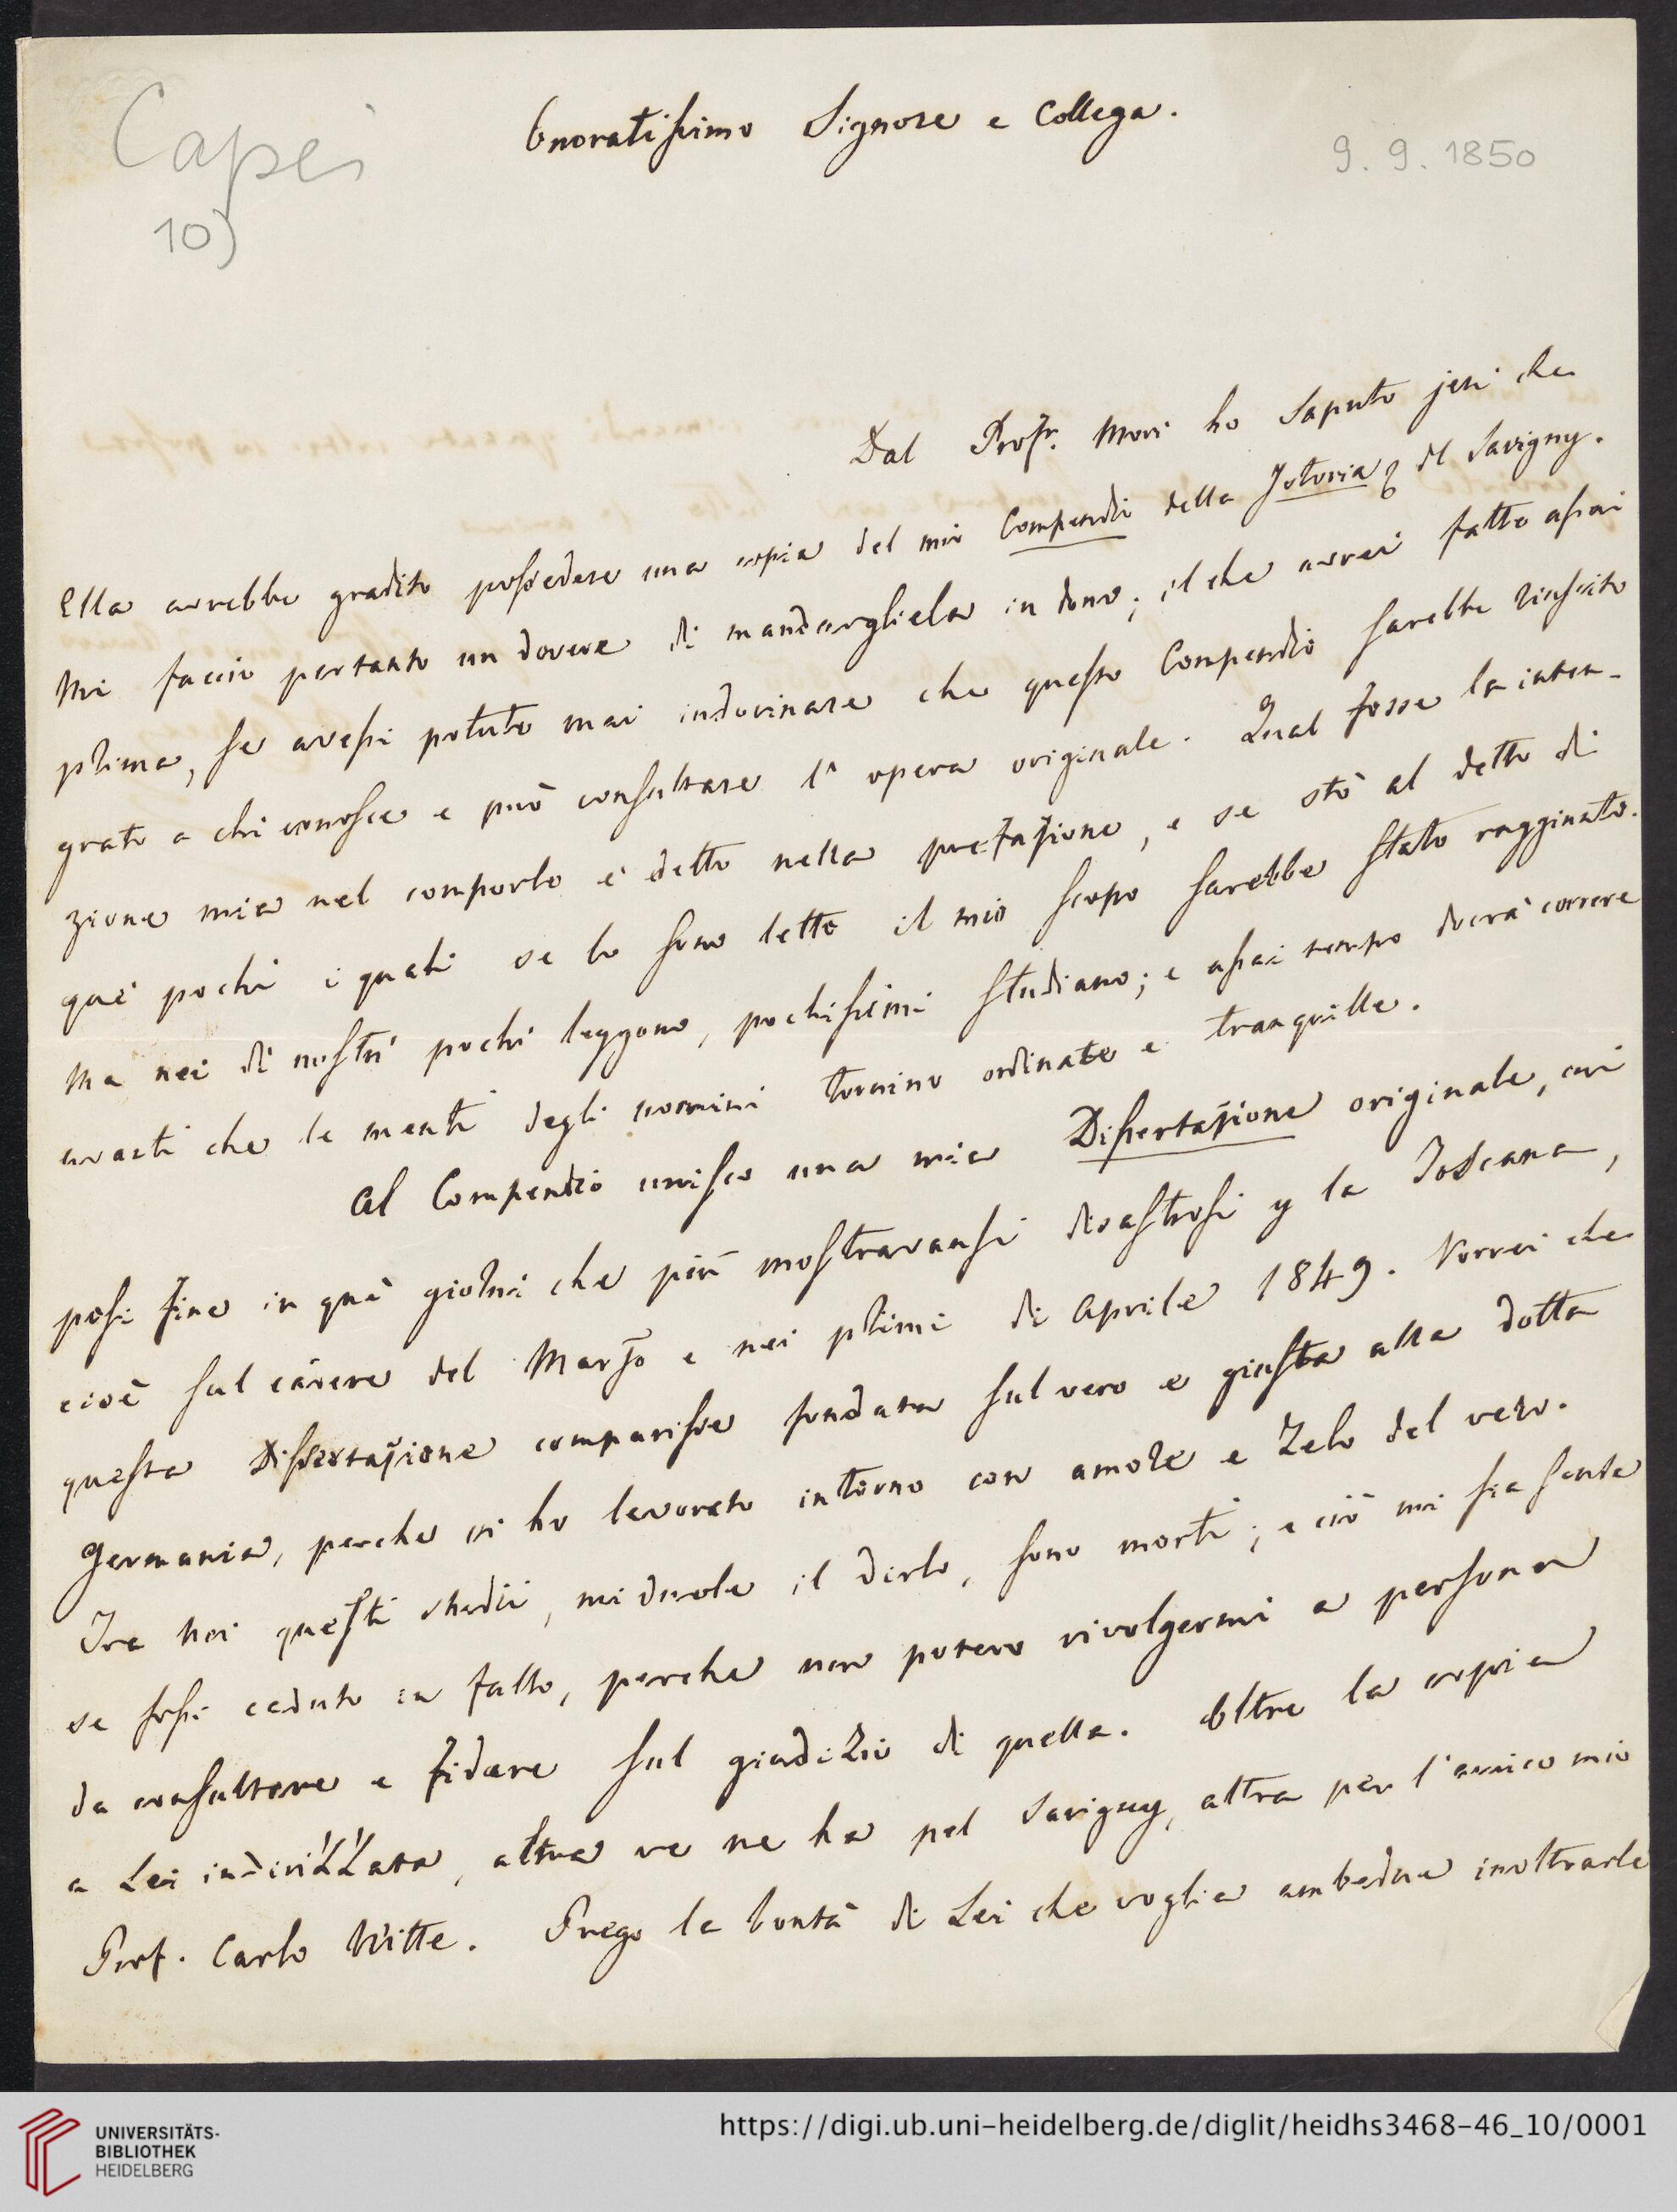 Capei
10)
Onoratissimo Signore e Collega.
9. 9. 1850
Dal Profr. Mori ho saputo jeri che
Ella avrebbe gradito possedere una copia del mio Compendio della Istoria & del Savigny.
Mi faccio pertanto un dovere di mandargliela in dono; il che avrei fatto assai
prima, se avessi potuto mai indovinare che questo Compendio sarebbe riuscito
grato a chi conosce e può consultare l'opera originale. Qual fosse la inten-
zione mia nel comporlo è detto nella prefazione, e se stò al detto di
que' pochi i quali se lo sono letto il mio scopo sarebbe stato raggiunto.
Ma nei dì nostri pochi leggono, pochissimi studiano; e assai tempo dovrà correre
avanti che le menti degli uomini tornino ordinate e tranquille.
Al Compendio unisco una mia Dissertazione originale, cui
posi fine in que' giorni che più mostravansi disastrosi p la Toscana,
cioè sul cadere del Marzo e nei primi di Aprile 1849. Vorrei che
questa Dissertazione comparisse fondata sul vero e giusta alla dotta
Germania, perche vi ho lavorato intorno con amore e zelo del vero.
Tra noi questi studii, mi duole il dirlo, sono morti; e ciò mi sia scusa
se fossi caduto in fallo, perche non potevo rivolgermi a persona
da consultare e fidare sul giudizio di quella. Oltre la copia
a Lei indirizzata, altra ve ne ha pel Savigny, altra per l'amico mio
Prof. Carlo Witte. Prego la bontà di Lei che voglia ambedue inoltrarle
UNIVERSITÄTS-
BIBLIOTHEK
HEIDELBERG
https://digi.ub.uni-heidelberg.de/diglit/heidhs3468-46_10/0001